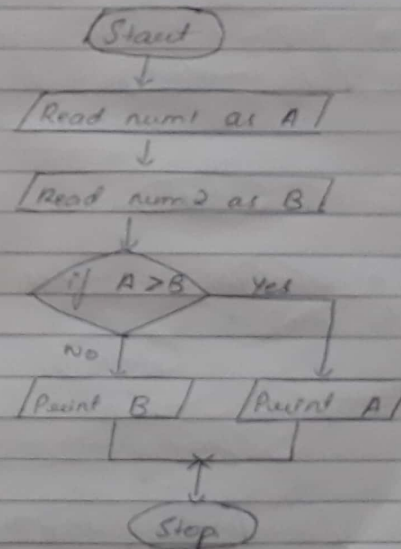 Start
Read num1 as A
Read num2 as B
if A > B
Yes
No
Print B
Print A
Stop